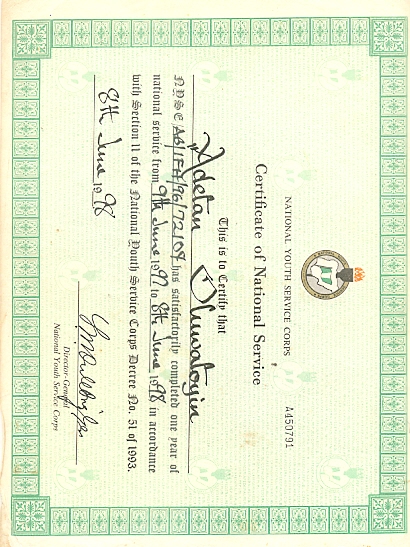 NATIONAL YOUTH SERVICE CORPS
A450791
Certificate of National Service
This is to Certify that
Adetan Oluwatoyin
NYSC AB/IFH/96/72109 has satisfactorily completed one year of
national service from 9th June 1997 to 8th June 1998 in accordance
with Section 11 of the National Youth Service Corps Decree No. 51 of 1993.
8th June 1998
Director-General
National Youth Service Corps